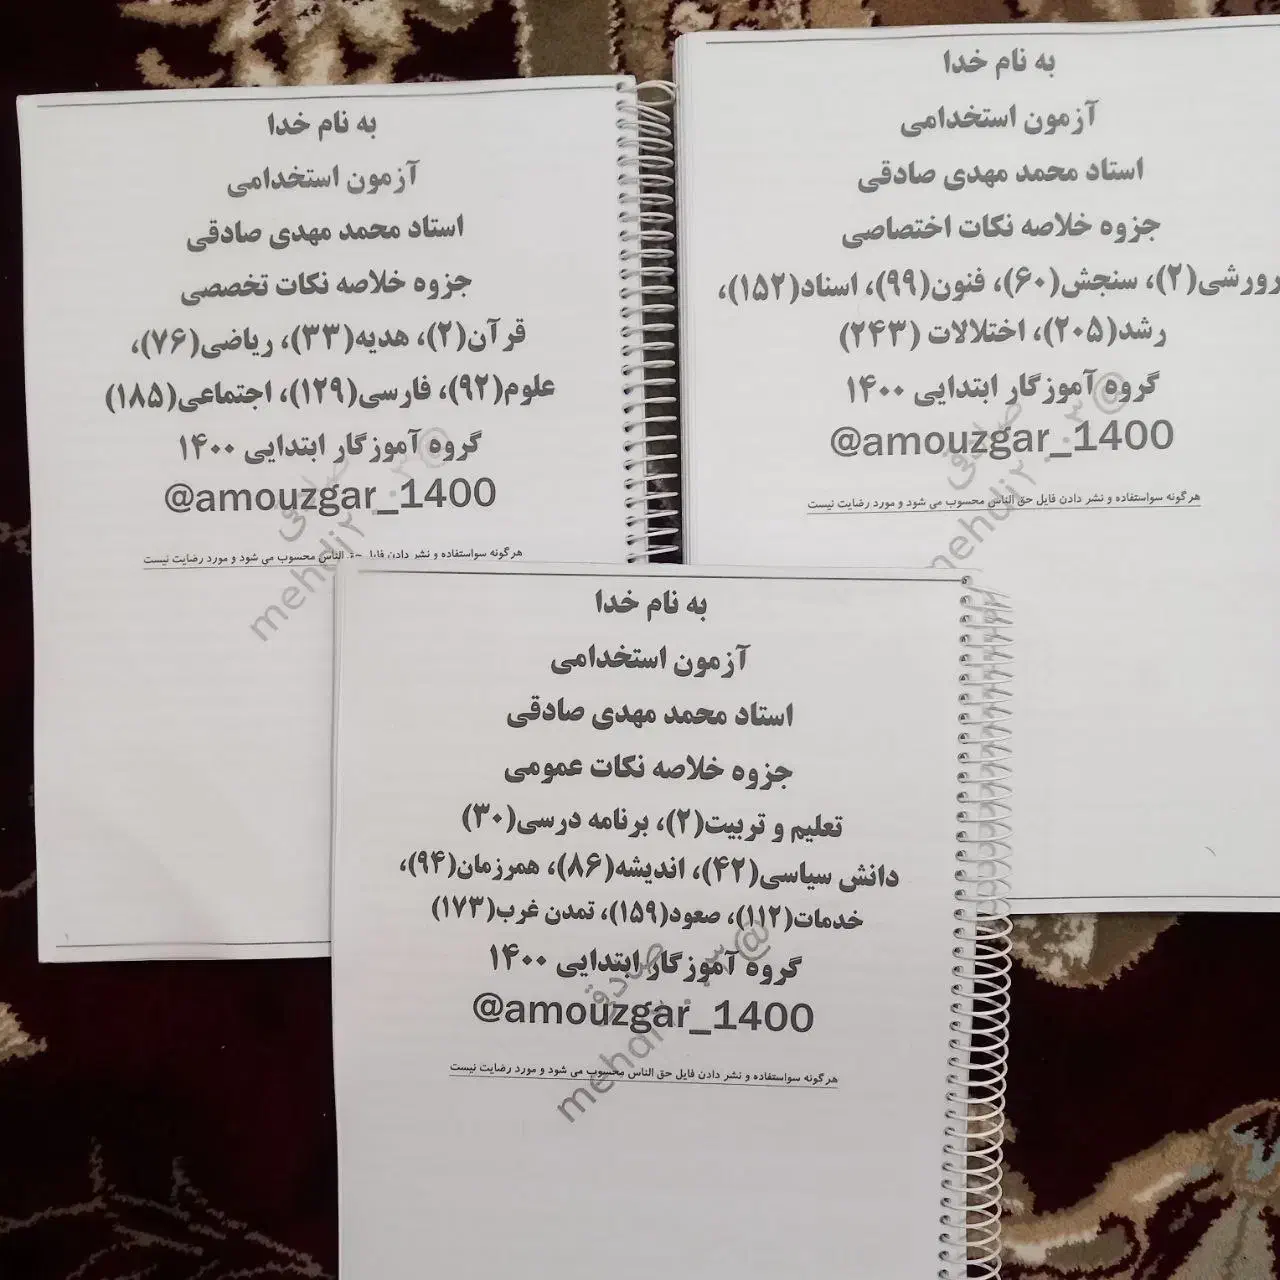 به نام خدا
آزمون استخدامی
استاد محمد مهدی صادقی
جزوه خلاصه نکات اختصاصی
رورشی(۲)، سنجش(۶۰)، فنون(۹۹)، اسناد(۱۵۲)،
رشد(۲۰۵)، اختلالات (۲۴۳)
گروه آموزگار ابتدایی ۱۴۰۰
@amouzgar_1400
هرگونه سواستفاده و نشر دادن فایل حق الناس محسوب می شود و مورد رضایت نیست
به نام خدا
آزمون استخدامی
استاد محمد مهدی صادقی
جزوه خلاصه نکات تخصصی
قرآن(۲)، هدیه(۳۳)، ریاضی(۷۶)،
علوم(۹۲)، فارسی(۱۲۹)، اجتماعی(۱۸۵)
گروه آموزگار ابتدایی ۱۴۰۰
@amouzgar_1400
هرگونه سواستفاده و نشر دادن فایل حق الناس محسوب می شود و مورد رضایت نیست
به نام خدا
آزمون استخدامی
استاد محمد مهدی صادقی
جزوه خلاصه نکات عمومی
تعلیم و تربیت(۲)، برنامه درسی(۳۰)
دانش سیاسی(۴۲)، اندیشه(۸۶)، همرزمان(۹۴)،
خدمات(۱۱۲)، صعود(۱۵۹)، تمدن غرب(۱۷۳)
گروه آموزگار ابتدایی ۱۴۰۰
@amouzgar_1400
هرگونه سواستفاده و نشر دادن فایل حق الناس محسوب می شود و مورد رضایت نیست